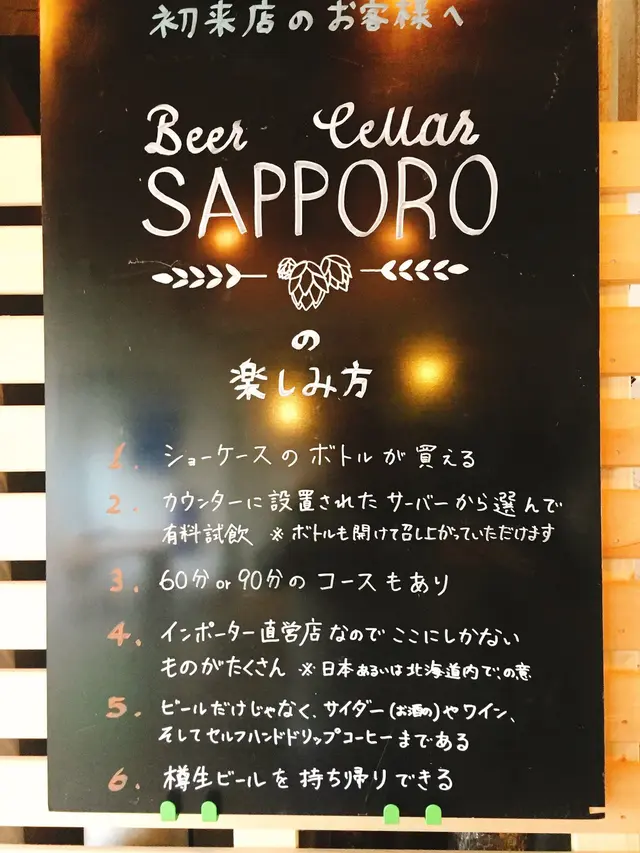 初来店のお客様へ
Beer Cellar
SAPPORO
の
楽しみ方
1. ショーケースのボトルが買える
2. カウンターに設置されたサーバーから選んで
有料試飲 ※ボトルも開けて召し上がっていただけます
3. 60分or90分のコースもあり
4. インポーター直営店なのでここにしかない
ものがたくさん ※日本あるいは北海道内で、の意
5. ビールだけじゃなく、サイダー(お酒の)やワイン、
そしてセルフハンドドリップコーヒーまである
6. 樽生ビールを持ち帰りできる